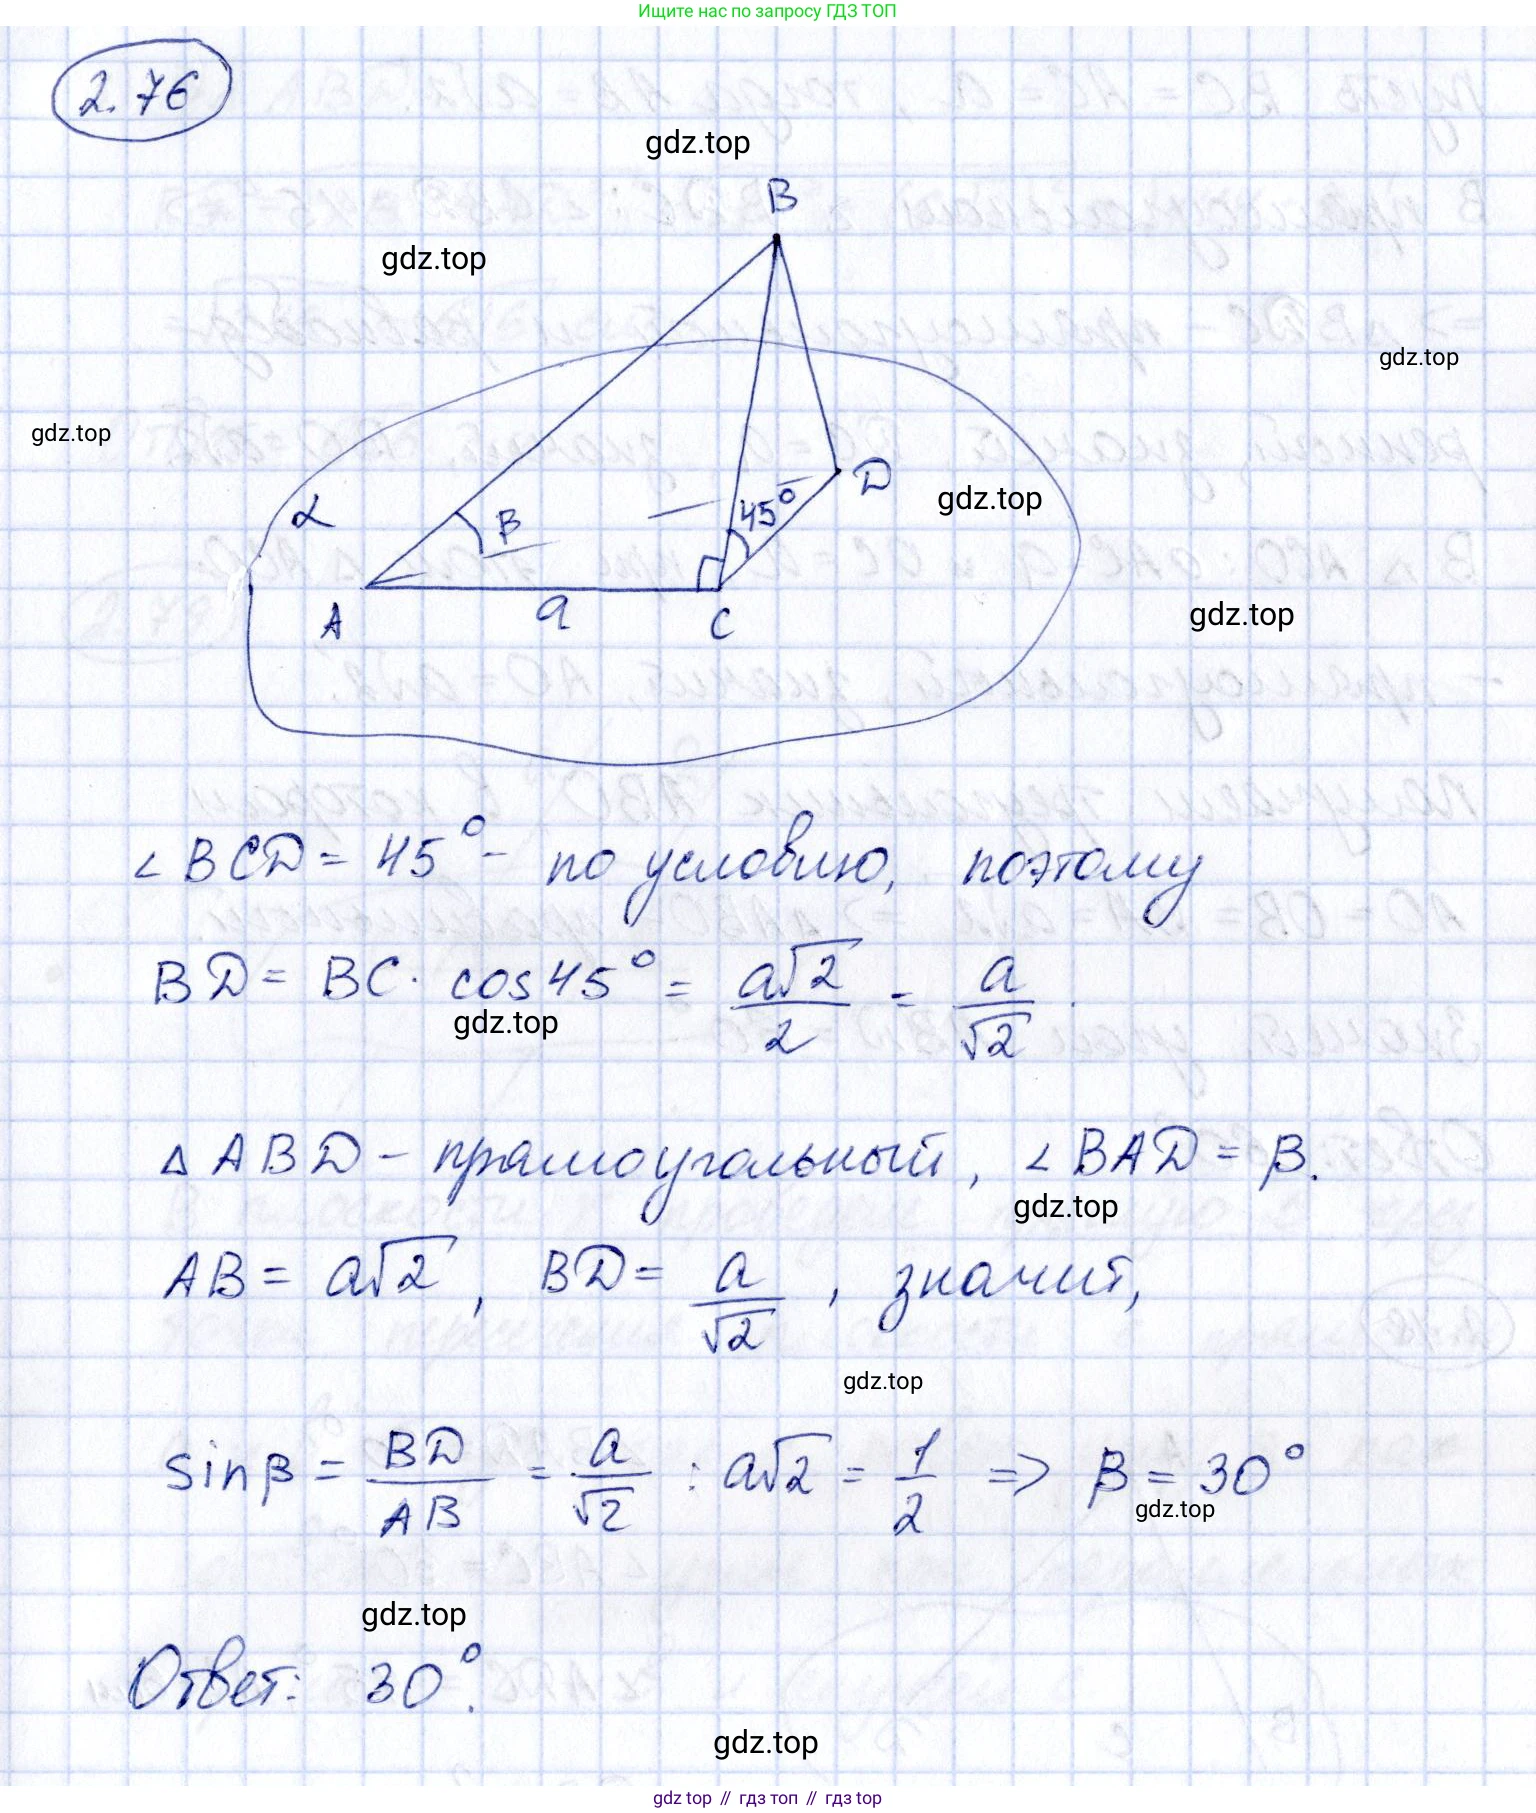 Ищите нас по запросу ГДЗ ТОП
2.76
gdz.top
B
gdz.top
gdz.top
gdz.top
α
β
45°
D
gdz.top
A
a
C
gdz.top
∠BCD = 45° - по условию, поэтому
BD = BC · cos45° = a√2/2 = a/√2.
gdz.top
△ABD - прямоугольный, ∠BAD = β.
gdz.top
AB = a√2, BD = a/√2, значит,
gdz.top
sinβ = BD/AB = a/√2 : a√2 = 1/2 => β = 30°
gdz.top
gdz.top
Ответ: 30°.
gdz.top
gdz top // гдз топ // гдз top